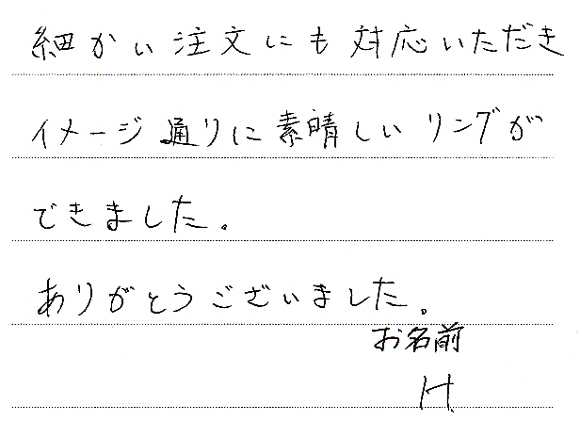 細かい注文にも対応いただき
イメージ通りに素晴しいリングが
できました。
ありがとうございました。
お名前
H.